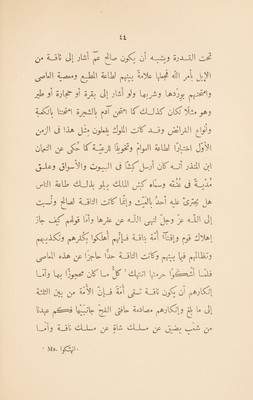 ٤٤
تحت القدرة ويشبه أن يكون صالح عم أشار إلى ناقة من
الإبل بأمر الله فجعلها علامة بينهم لطاعة المطيع ومعصية العاصى
وامتحنهم بورْدها وشربها ولو أشار إلى بقرة أو حجارة أو طير
وهو مثلا لكان كذلك كما امتحن آدم بالشجرة امتحنا بالكعبة
وأنواع الفرائض وقد كانت الملوك يفعلون مثل هذا فى الزمن
الأوّل اختبارًا لطاعة العوامّ وتخويفًا للرعيّة كما حكى عن النعمان
ابن المنذر أنه كان أرسل كبشًا فى البيوت والأسواق وعلّق
مُدْيَة فى عنقه وسمّاه كبش الملك يبلو بذلك طاعة الناس
هل يجترئ عليه أحد بالعَبَث وإنّما كانت الناقة لصالح ونُسبت
إلى اللـه عزّ وجلّ لنهى اللـه عن عقرها وأمّا قولهم كيف جاز
إهلاك قوم وإفناء أُمّة بناقة فإنّهم أُهلكوا بكُفرهم وتكذيبهم
وتظالمهم فيها بينهم وكانت الناقة حدًّا حاجزًا عن هذه المعاصى
فلمّا انتهكوا حرمتها انتهك ' كلّ ما كان محجوزًا بها وأمّا
إنكارهم أن يكون ناقة تسقى أُمّة فإنّ الأُمّة من بين الثلثة
إلى ما بلغ وإنكارهم مصادمة حافتى الفجّ جانبيها فكم عهدنا
من شعب يضيق عن مسلك شاة عن مسلك ناقة وأما
' Ms. انهتكوا.